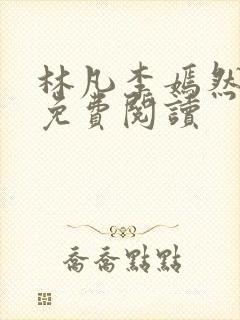 林凡李嫣然
免費閱讀
喬喬點點